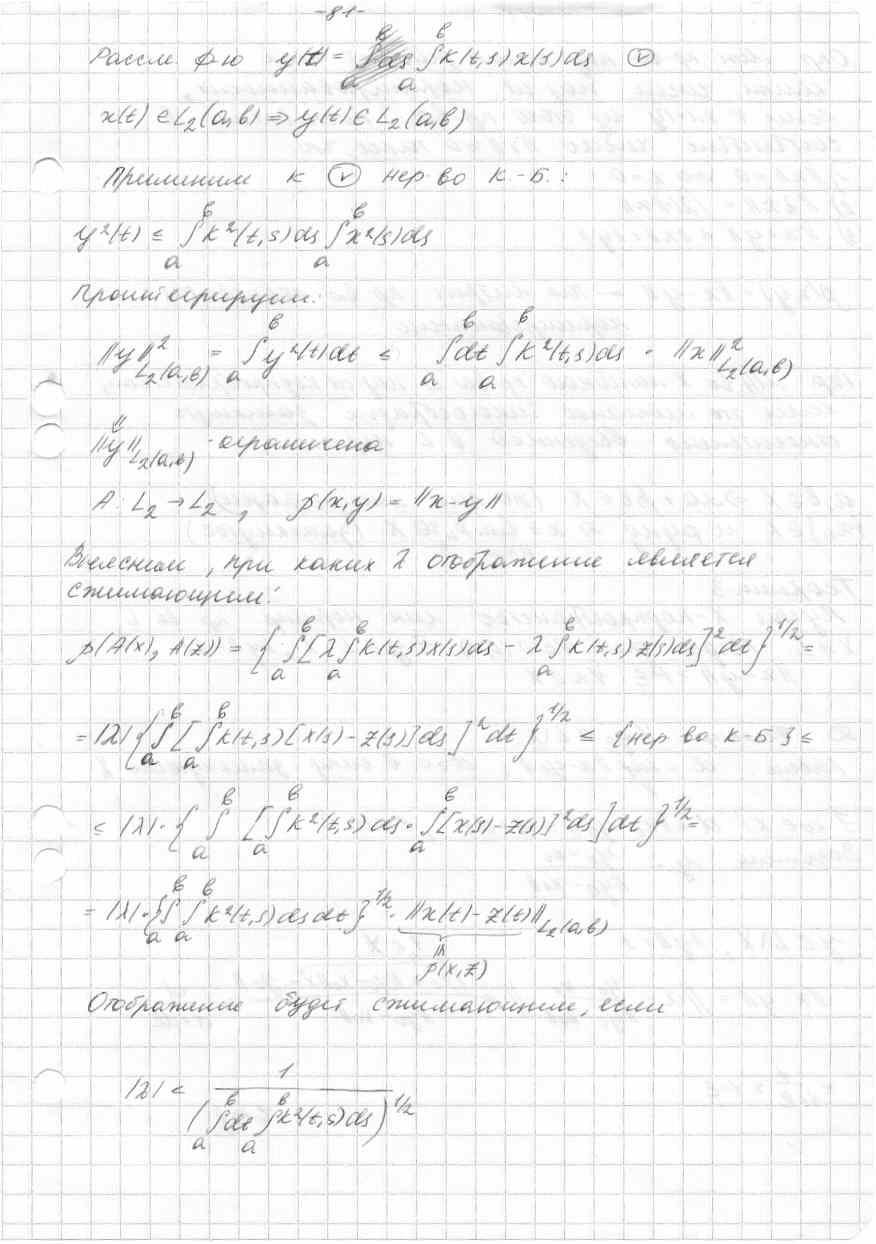 -81-
Рассм. ф-ю y(t) = ∫ₐᵇ K(t,s)x(s)ds (v)
x(t) ∈ L₂(a,b) ⇒ y(t) ∈ L₂(a,b)
Применим к (v) нер-во К.-Б.:
y²(t) ≤ ∫ₐᵇ K²(t,s)ds ∫ₐᵇ x²(s)ds
Проинтегрируем:
||y||²_L₂(a,b) = ∫ₐᵇ y²(t)dt ≤ ∫ₐᵇ dt ∫ₐᵇ K²(t,s)ds · ||x||²_L₂(a,b)
⇓
||y||_L₂(a,b) - ограничена
A: L₂ → L₂, ρ(x,y) = ||x-y||
Выясним, при каких λ отображение является
сжимающим:
ρ(A(x), A(z)) = {∫ₐᵇ [λ∫ₐᵇ K(t,s)x(s)ds - λ∫ₐᵇ K(t,s)z(s)ds]² dt}^1/2 =
= |λ| {∫ₐᵇ [∫ₐᵇ K(t,s)[x(s)-z(s)]ds]² dt}^1/2 ≤ {нер-во К-Б} ≤
≤ |λ| · {∫ₐᵇ [∫ₐᵇ K²(t,s)ds · ∫ₐᵇ [x(s)-z(s)]² ds] dt}^1/2 =
= |λ| · {∫ₐᵇ ∫ₐᵇ K²(t,s)dsdt}^1/2 · ||x(t)-z(t)||_L₂(a,b)
||
ρ(x,z)
Отображение будет сжимающим, если
|λ| < 1 / (∫ₐᵇ dt ∫ₐᵇ K²(t,s)ds)^1/2